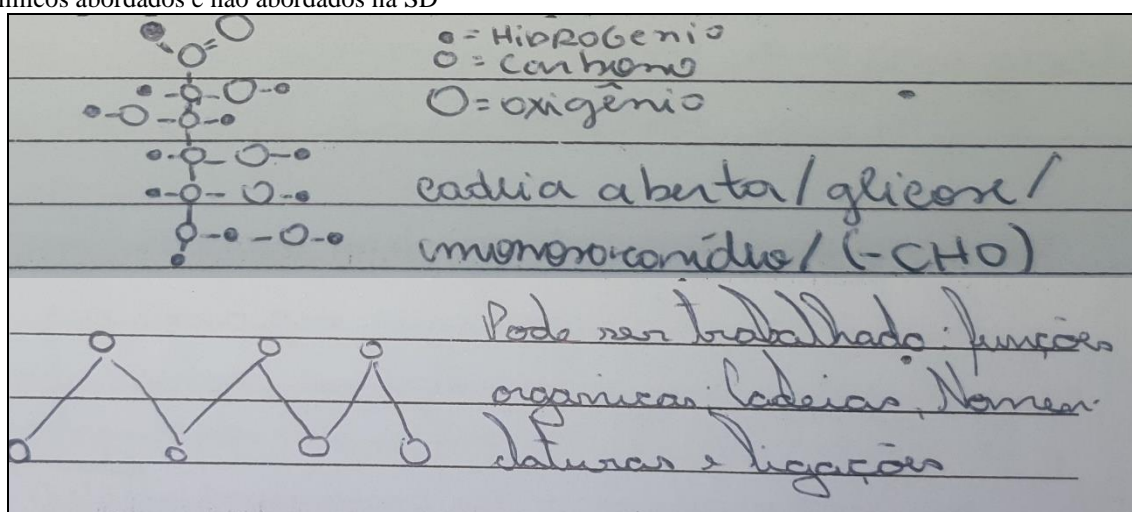 ímicos abordados e não abordados na SD
= Hidrogenio
= Carbono
= oxigênio
cadeia aberta/glicose/
monossacarídeo/ (-CHO)
Pode ser trabalhado: funções
organicas, Cadeias, Nomen-
claturas e ligações